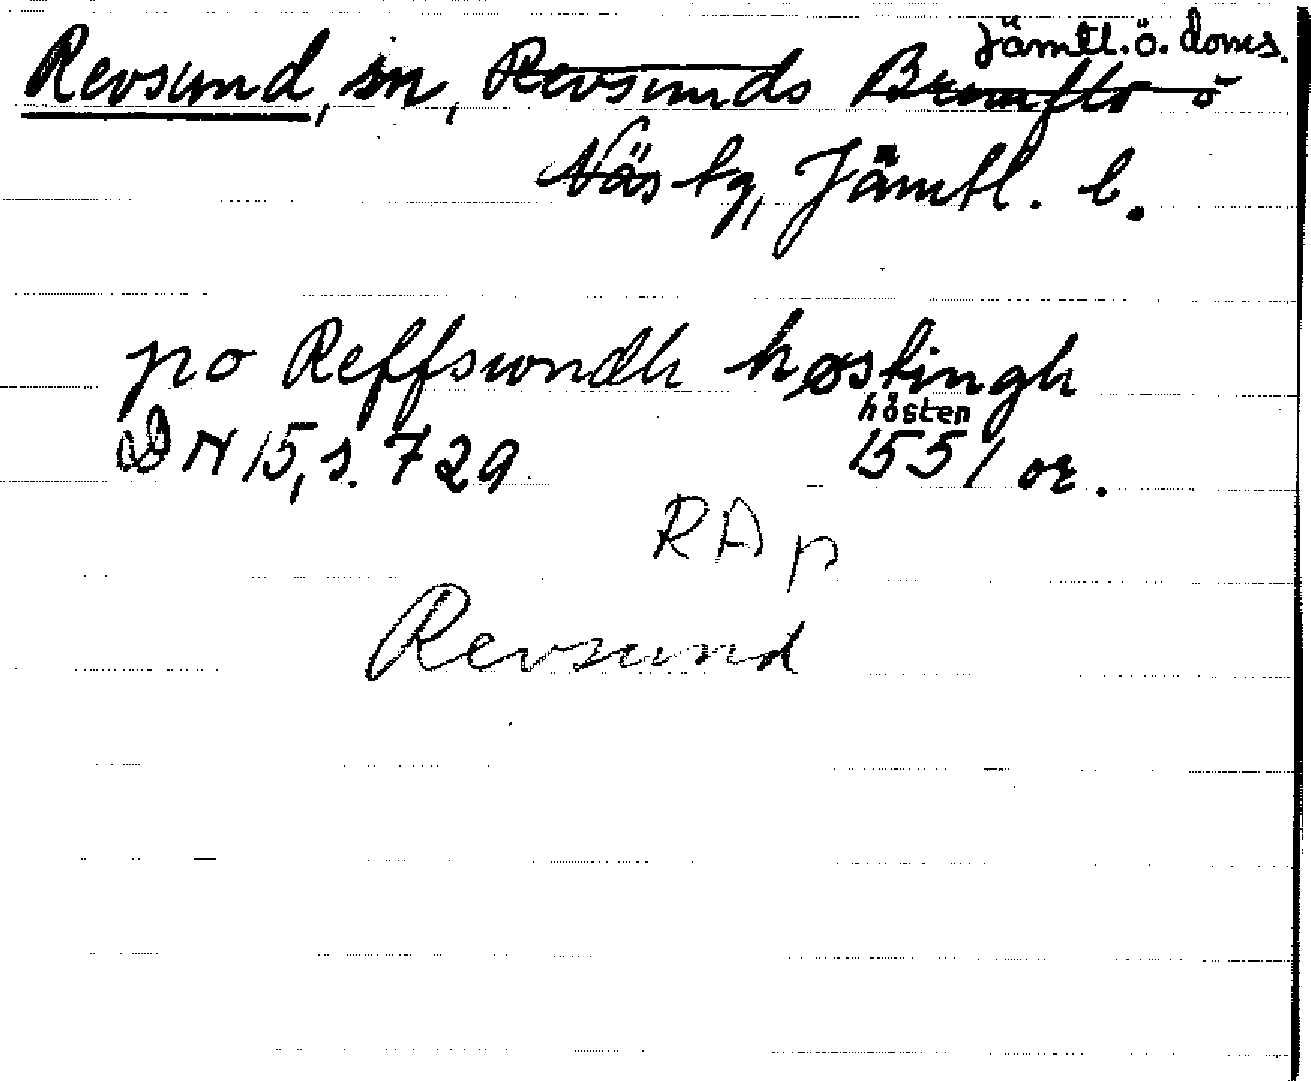 Jämtl. ö. doms.
Revsund, sn, Revsunds Brunflo o
Näs tg, Jämtl. l.
po Reffswndh høstingh
hösten
DN 15, s. 729 1551 or.
RA p
Revsund